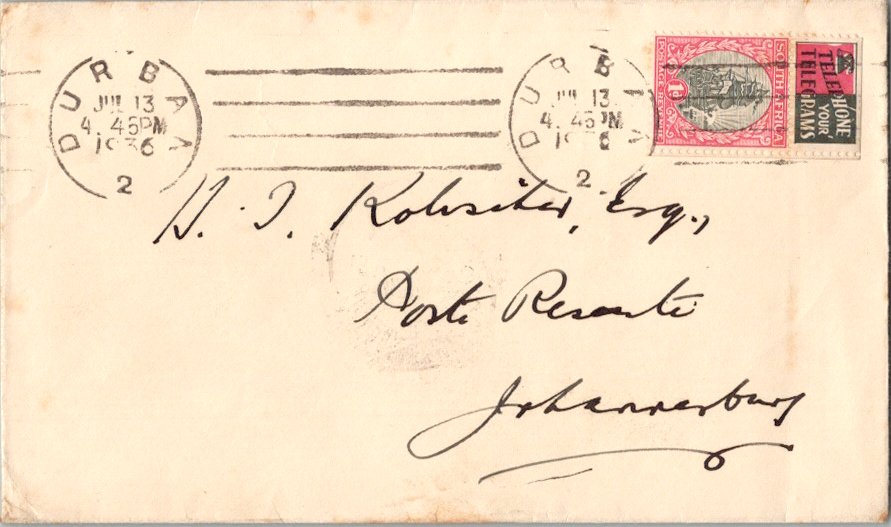 DURBAN
JUL 13
4. 45PM
1936
2
DURBA
JUL 13
4. 45PM
1936
2
SOUTH AFRICA
1D
POSTAGE REVENUE
TELEPHONE
YOUR
TELEGRAMS
H. J. Esq.,
Poste Restante
Johannesburg